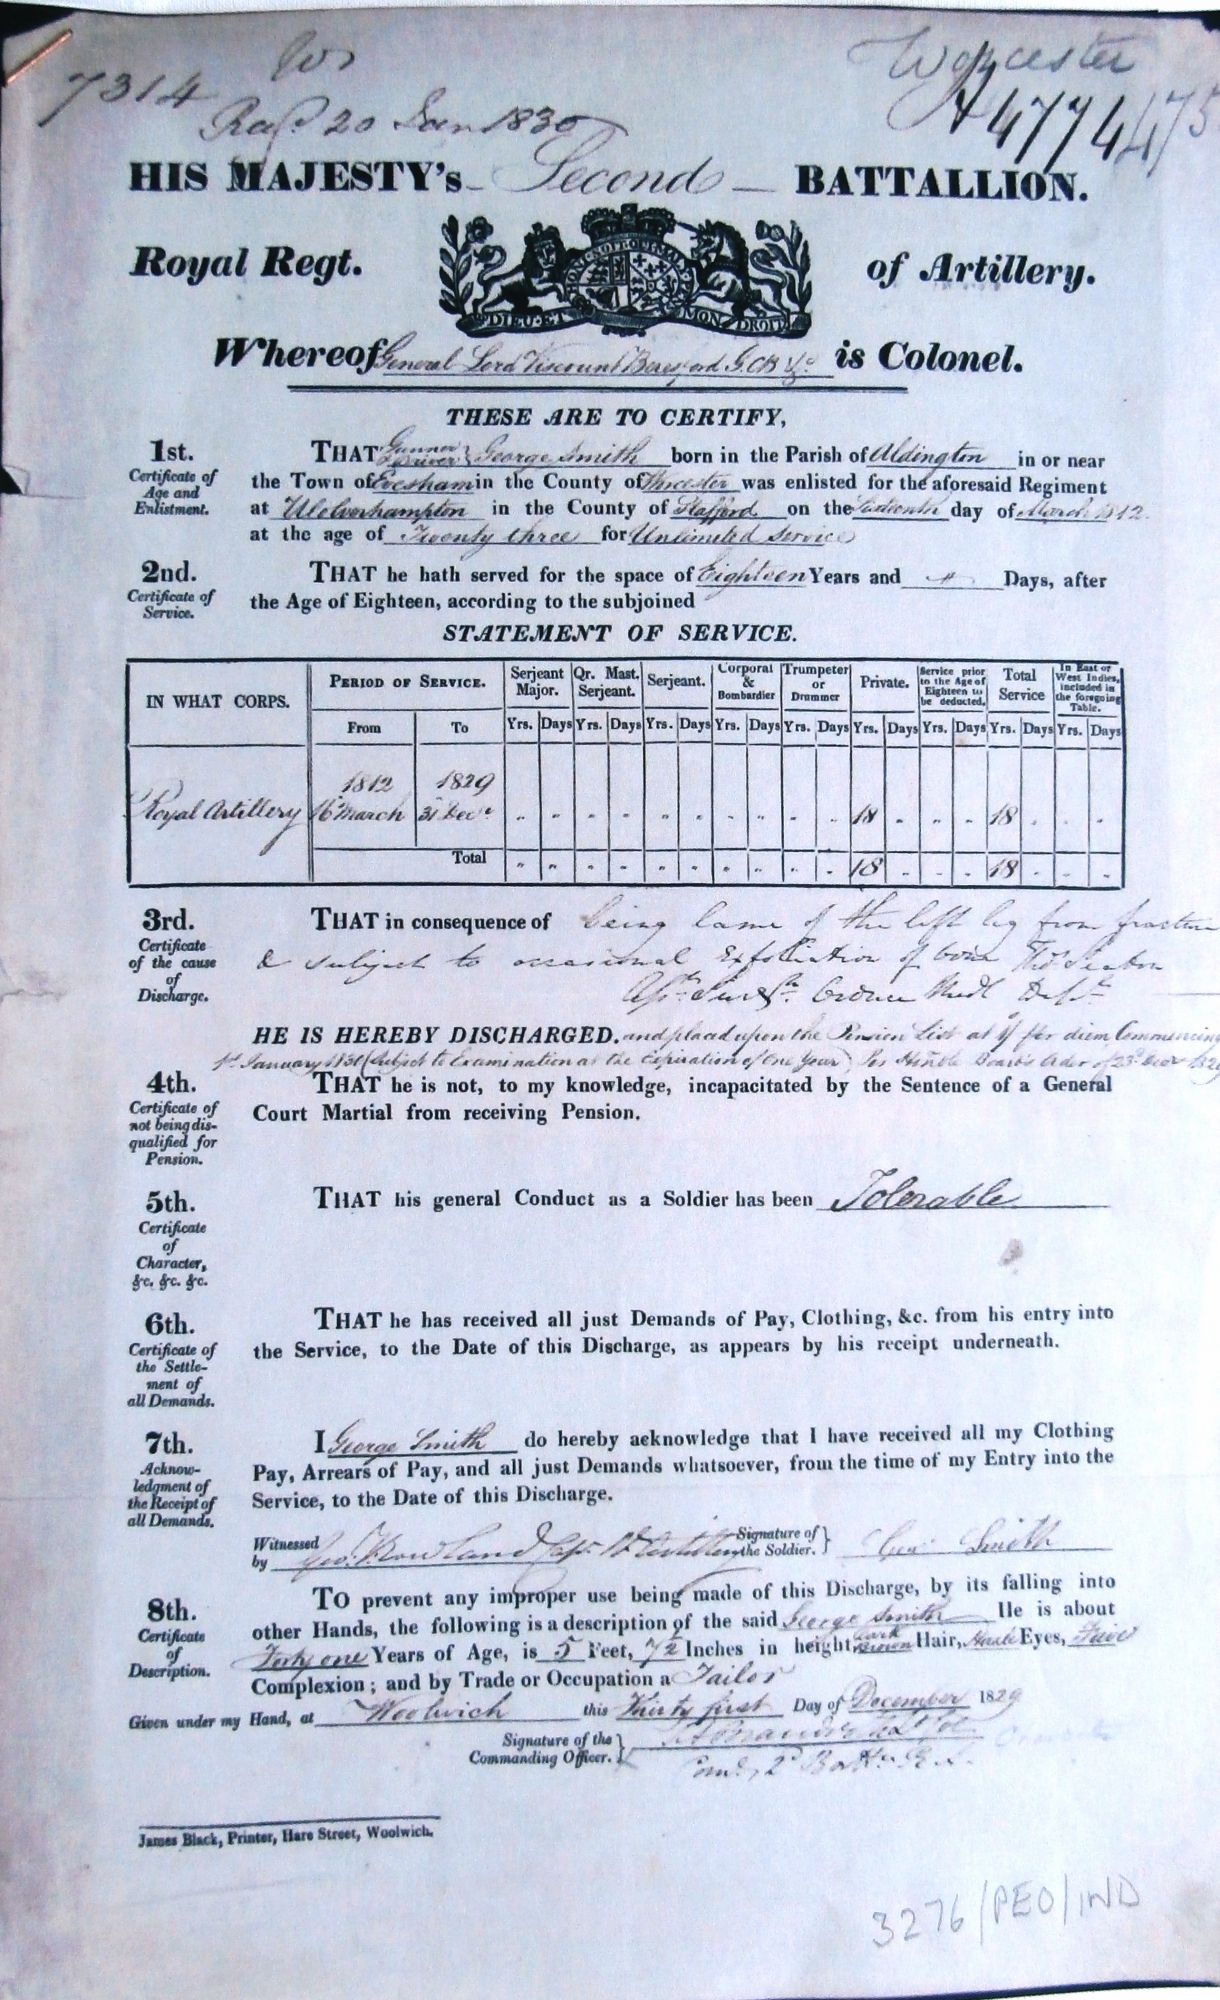 7314
Worcester
A 4774
475
20 Jan 1830
HIS MAJESTY's Second BATTALLION.
Royal Regt. of Artillery.
DIEU ET MON DROIT
Whereof General Lord Viscount Beresford G.C.B &c is Colonel.
THESE ARE TO CERTIFY,
1st.
Certificate of
Age and
Enlistment.
THAT Gunner & Driver George Smith born in the Parish of Aldington in or near
the Town of Evesham in the County of Worcester was enlisted for the aforesaid Regiment
at Wolverhampton in the County of Stafford on the Sixteenth day of March 1812
at the age of Twenty three for Unlimited Service
2nd.
Certificate of
Service.
THAT he hath served for the space of Eighteen Years and Days, after
the Age of Eighteen, according to the subjoined
STATEMENT OF SERVICE.
IN WHAT CORPS. PERIOD OF SERVICE. Serjeant Major. Qr. Mast. Serjeant. Serjeant. Corporal & Bombardier Trumpeter or Drummer Private. Service prior to the Age of Eighteen to be deducted. Total Service In East or West Indies, included in the foregoing Table.
From To Yrs. Days Yrs. Days Yrs. Days Yrs. Days Yrs. Days Yrs. Days Yrs. Days Yrs. Days Yrs. Days
1812 1829
Royal Artillery 16 March 31 Decr " " " " " " " " " " 18 " " " 18 " " "
Total " " " " " " " " " " 18 " " " 18 " " "
3rd.
Certificate
of the cause
of
Discharge.
THAT in consequence of being lame of the left leg from fracture
& subject to occasional Exfoliation of bone Thos Seaton
Asst Surgn Ordnce Medl Dept
HE IS HEREBY DISCHARGED. and placed upon the Pension List at per diem Commencing
1st January 1830 (Subject to Examination at the Expiration of One Year) Per Honble Boards Order of 23d Decr 1829
4th.
Certificate of
not being dis-
qualified for
Pension.
THAT he is not, to my knowledge, incapacitated by the Sentence of a General
Court Martial from receiving Pension.
5th.
Certificate
of
Character,
&c. &c. &c.
THAT his general Conduct as a Soldier has been Tolerable
6th.
Certificate of
the Settle-
ment of
all Demands.
THAT he has received all just Demands of Pay, Clothing, &c. from his entry into
the Service, to the Date of this Discharge, as appears by his receipt underneath.
7th.
Acknow-
ledgment of
the Receipt of
all Demands.
I George Smith do hereby acknowledge that I have received all my Clothing
Pay, Arrears of Pay, and all just Demands whatsoever, from the time of my Entry into the
Service, to the Date of this Discharge.
Witnessed by Geo. Rowland Capt Rl Artillery Signature of the Soldier. Geo. Smith
8th.
Certificate
of
Description.
TO prevent any improper use being made of this Discharge, by its falling into
other Hands, the following is a description of the said George Smith He is about
Forty one Years of Age, is 5 Feet, 7½ Inches in height Dark Brown Hair, Hazle Eyes, Fair
Complexion; and by Trade or Occupation a Tailor
Given under my Hand, at Woolwich this Thirty first Day of December 1829
Signature of the
Commanding Officer.
Comdg 2d Battn R.A.
James Black, Printer, Hare Street, Woolwich.
3276/PEO/IND